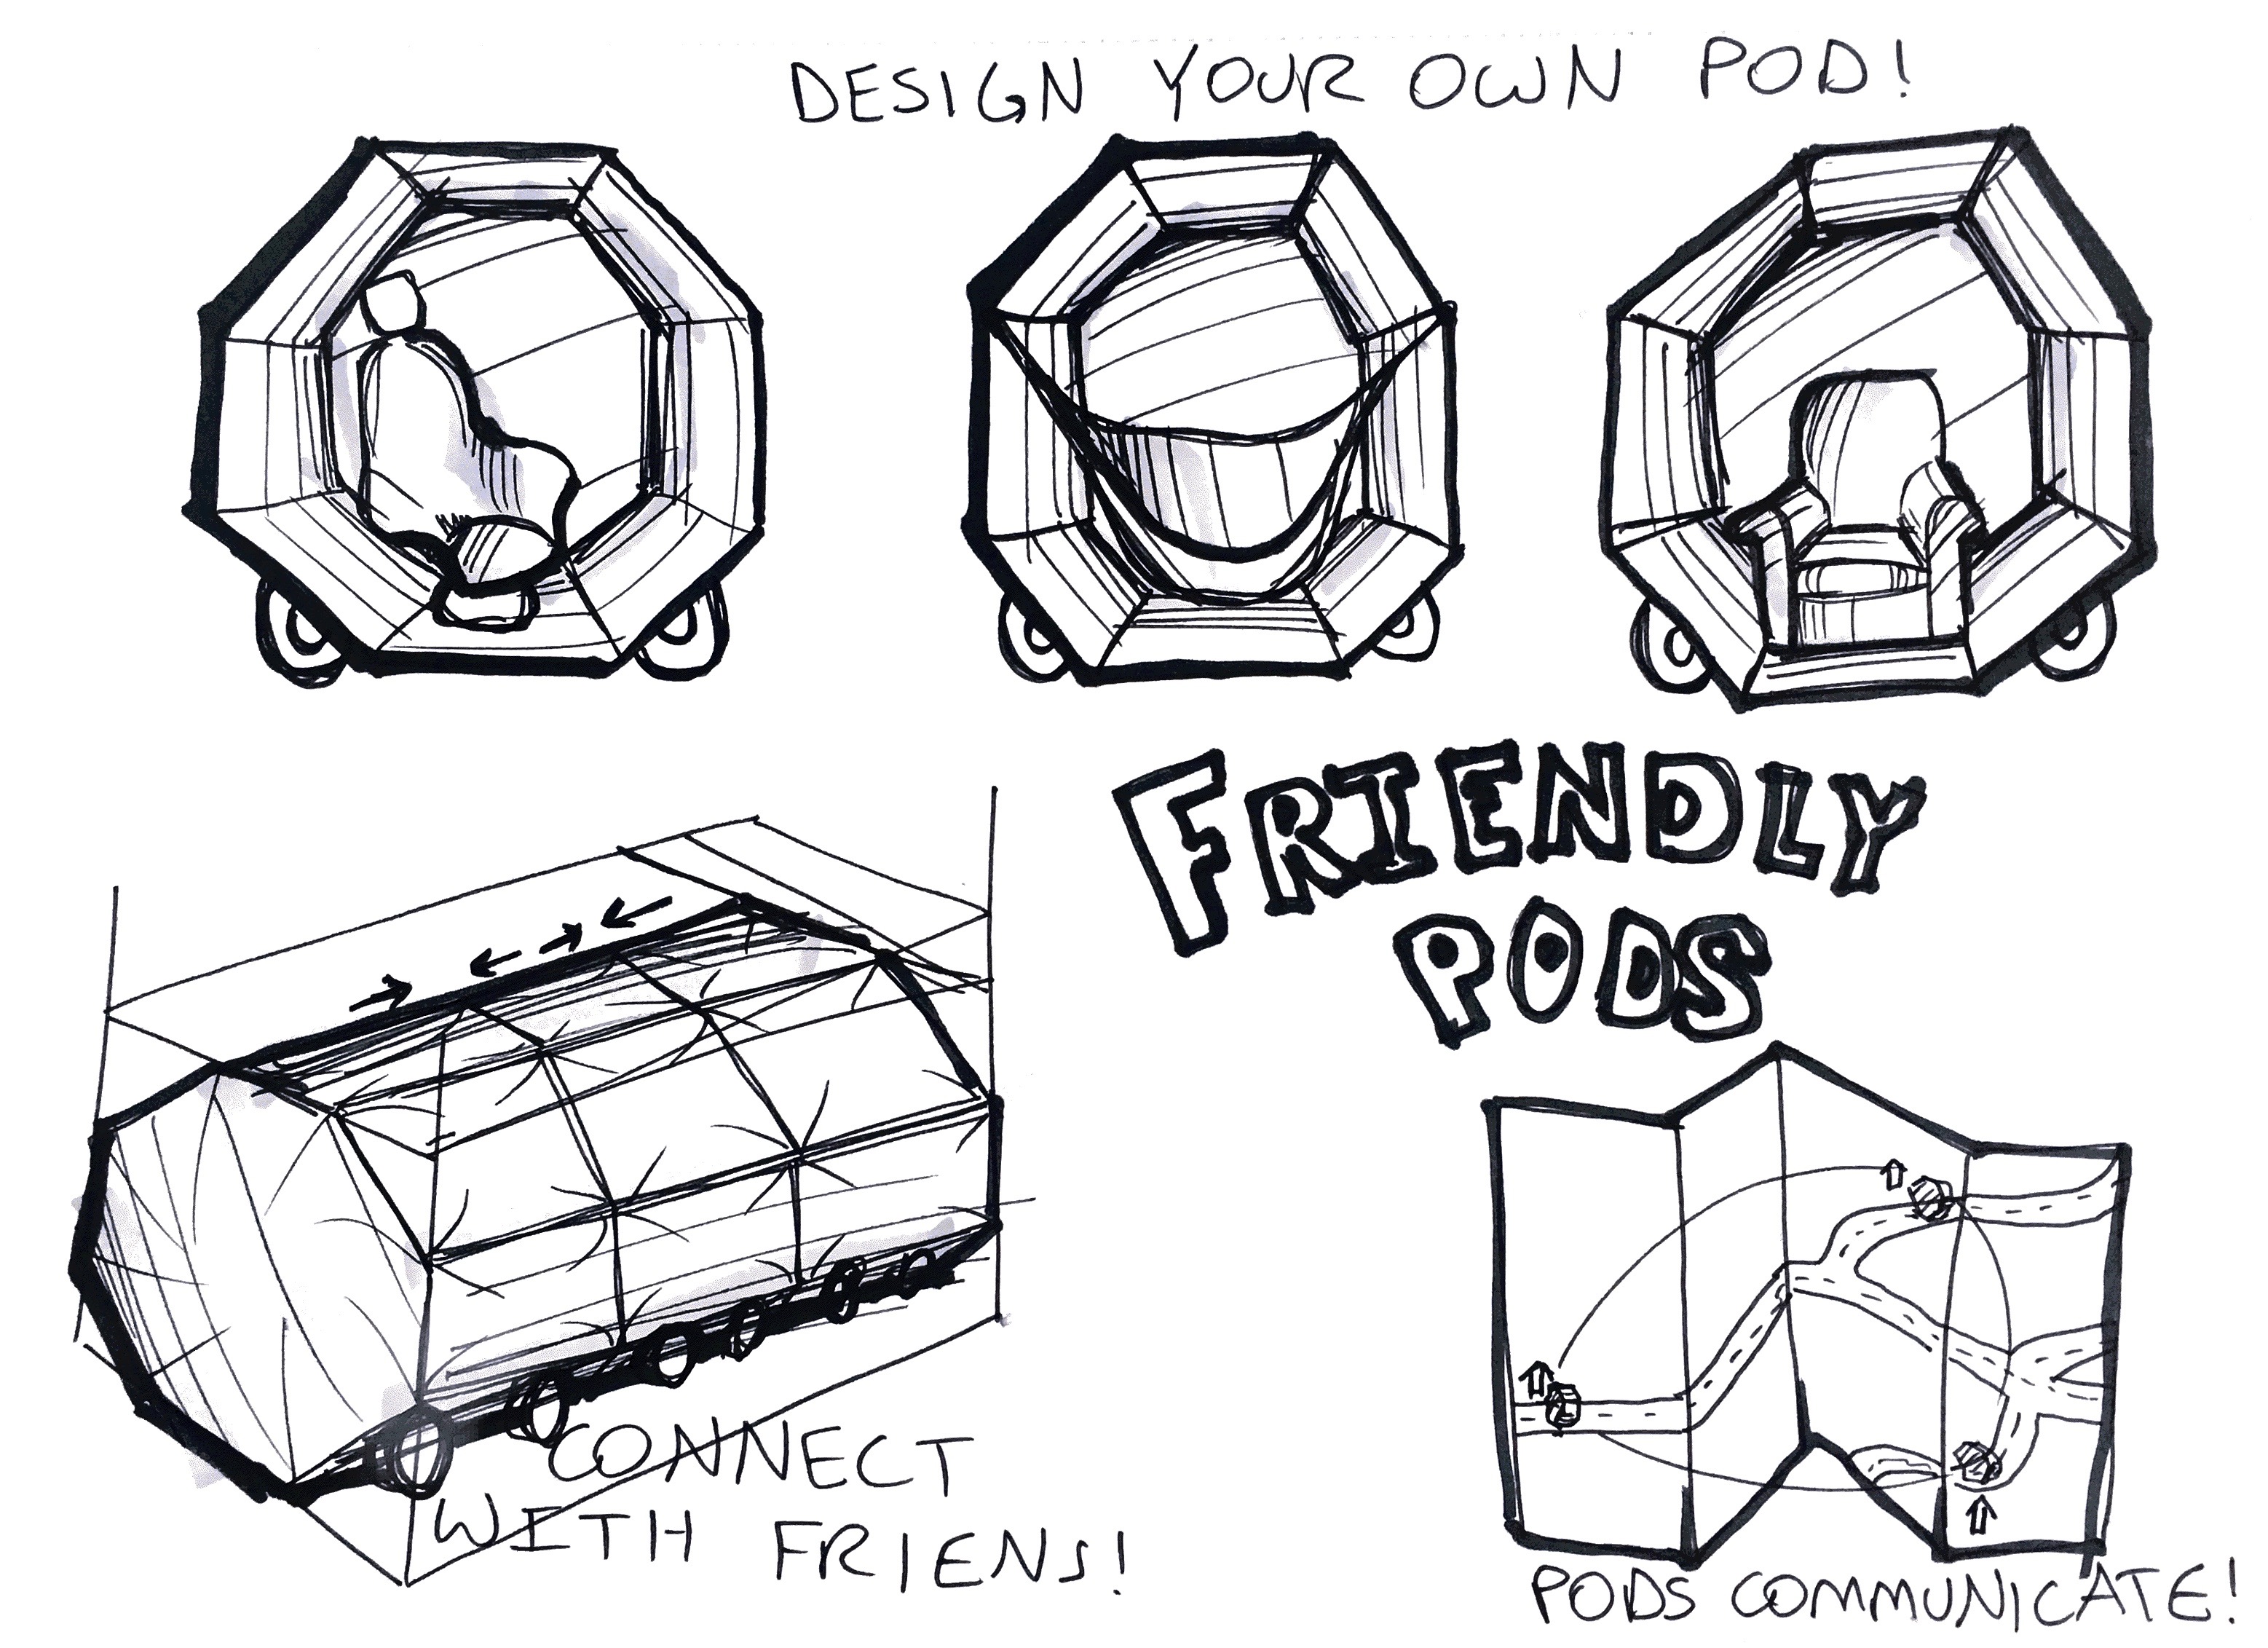 DESIGN YOUR OWN POD!
FRIENDLY
PODS
CONNECT
WITH FRIENS!
PODS COMMUNICATE!